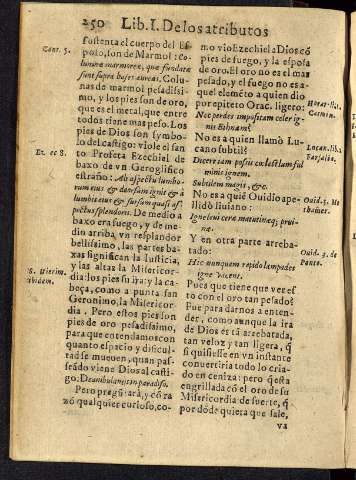 250 Lib. I. De los atributos
Cant. 5.
Et. ec 8.
S. Hierim.
ibidem.
sostenta el cuerpo del Es-
poso, son de Marmol: co-
lumnæ marmoreæ, quæ fundatæ
sunt supra bases aureas. Colu-
nas de marmol pesadissi-
mo, y los pies son de oro,
que es el metal, que entre
todos tiene mas peso. Los
pies de Dios son symbo
lo del castigo: viole el san
to Profeta Ezechiel de
baxo de vn Geroglifico
estraño: Ab aspectu lumbo-
rum eius & deorsum ignis & à
lumbis eius & sursum quasi as-
pectus splendoris. De medio a
baxo era fuego, y de me-
dio arriba, vn resplandor
bellissimo, las partes ba-
xas significan la Iusticia,
y las altas la Misericor-
dia: los pies su ira: y la ca-
beça, como a punta san
Geronimo, la Misericor-
dia. Pero estos pies son
pies de oro pesadissimo,
para que entendamos con
quanto espacio y dificul-
tad se mueuen, quan pas-
seãdo viene Dios al casti-
go: Deambulantem in paradiso.
Pero pregũtarà, y cõ ra
zõ qualquier curioso, co-
mo vio Ezechiel a Dios cõ
pies de fuego, y la esposa
de oro. El oro no es el mas
pesado, y el fuego no es a-
quel elemẽto a quien dio
por epiteto Orac. ligero:
Nec perdes impositam celer ig-
nis Bibnam?
No es a quien llamò Lu-
cano subtil?
Diceriam positi cælestium ful
minis ignem.
Subtilem magis, &c.
No es a quiẽ Ouidio ape-
llidò liuiano:
Igne leui ceræ matutinæq; prui-
næ.
Y en otra parte arreba-
tado:
Hic nunquam rapido lampades
igne vacent.
Pues que tiene que ver es-
to con el oro tan pesado?
Fue para darnos a enten-
der, como aunque la ira
de Dios es tã arrebatada,
tan veloz y tan ligera, q̃
si quisiesse en vn instante
conuertiria todo lo cria-
do en ceniza: pero q̃ esta
engrillada cõ el oro de su
Misericordia de suerte, q̃
por dõde quiera que sale,
va
Horat. lib.
Carmin.
Lucan. lib.
Farsalia.
Ouid. 3. Me
thamor.
Ouid. 3. de
Ponto.